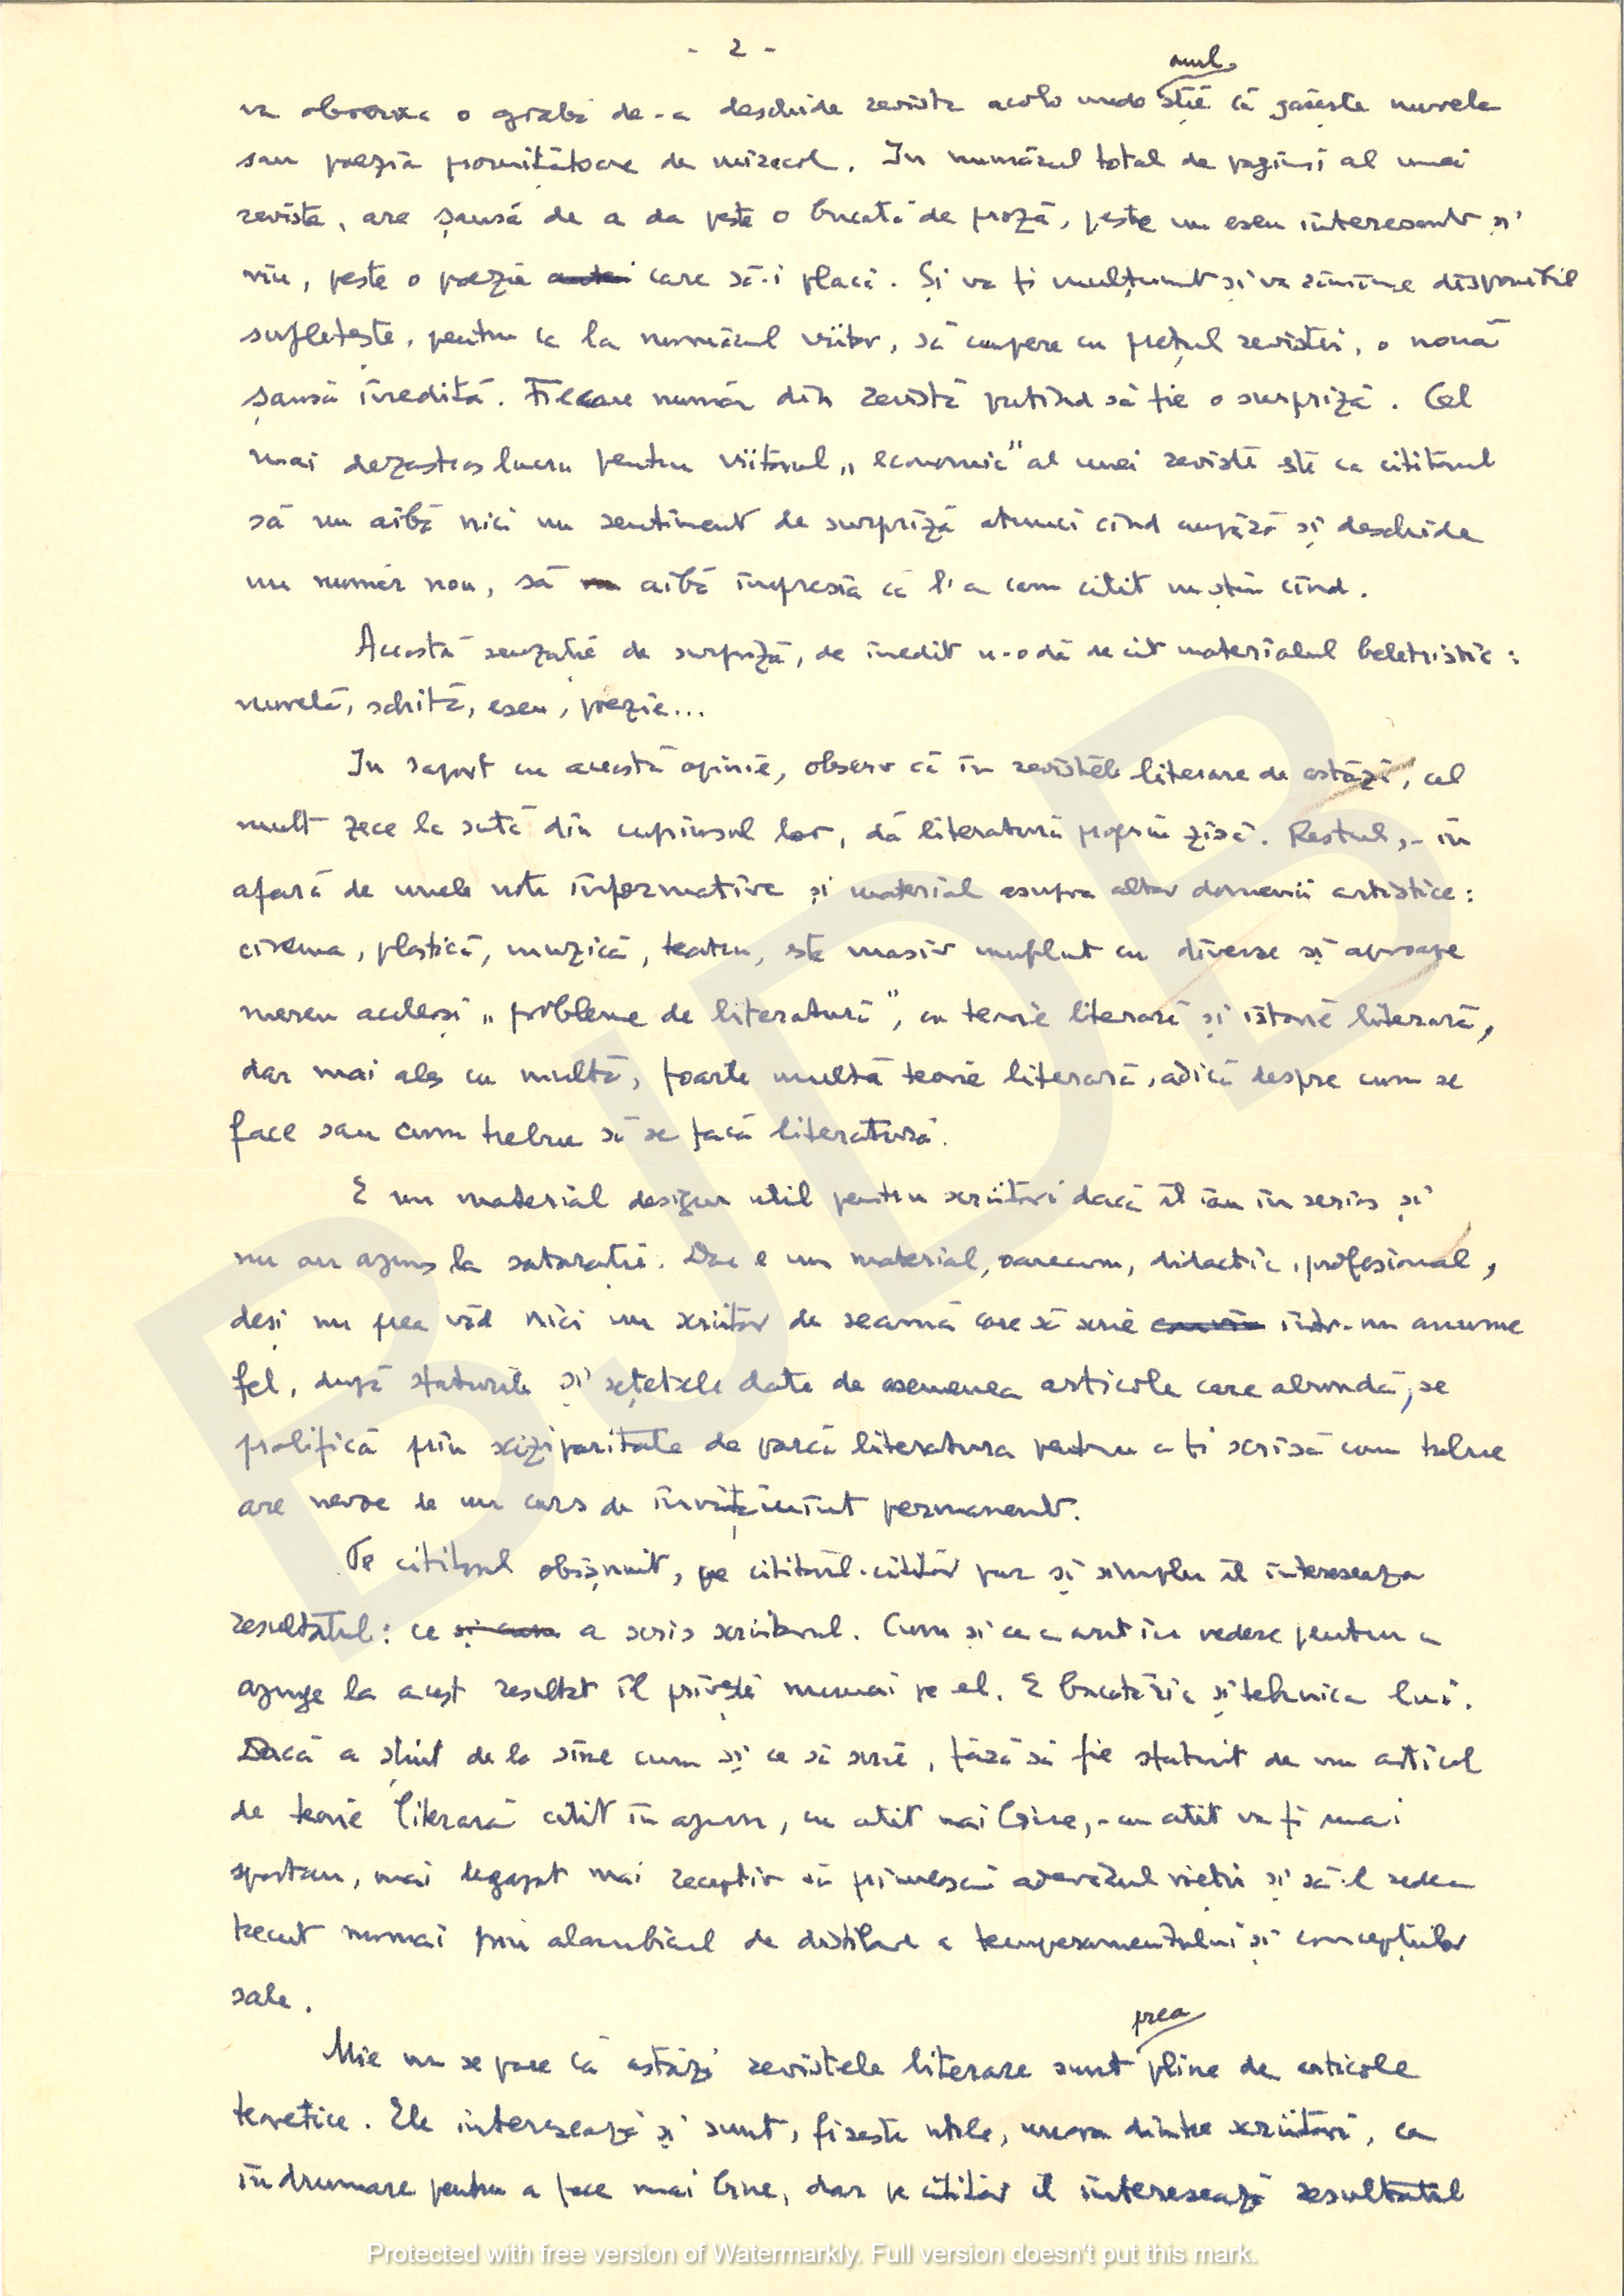 - 2 -
omul
va observa o grabă de-a deschide revista acolo unde știe că găsește nuvela
sau poezia promițătoare de miracol. In numărul total de pagini al unei
reviste, are șansă de a da peste o bucată de proză, peste un eseu interesant și
viu, peste o poezie care să-i placă. Și va fi mulțumit și va rămîne disponibil
sufletește, pentru ca la numărul viitor, să cumpere cu prețul revistei, o nouă
șansă inedită. Fiecare număr din revistă putînd să fie o surpriză. Cel
mai dezastros lucru pentru viitorul „economic" al unei reviste este ca cititorul
să nu aibă nici un sentiment de surpriză atunci cînd cumpără și deschide
un număr nou, să aibă impresia că l-a cam citit nu știu cînd.
Această senzație de surpriză, de inedit n-o dă decît materialul beletristic:
nuvelă, schiță, eseu, poezie...
In raport cu această opinie, observ că în revistele literare de astăzi, cel
mult zece la sută din cuprinsul lor, dă literatură propriu zisă. Restul, - în
afară de unele note informative și material asupra altor domenii artistice:
cinema, plastică, muzică, teatru, este masiv umplut cu diverse și aproape
mereu aceleași „probleme de literatură", cu teorie literară și istorie literară,
dar mai ales cu multă, foarte multă teorie literară, adică despre cum se
face sau cum trebue să se facă literatură.
E un material desigur util pentru scriitori dacă îl iau în serios și
nu au ajuns la saturație. Dar e un material, oarecum, didactic, profesional,
deși nu prea văd nici un scriitor de seamă care să scrie într-un anume
fel, după sfaturile și rețetele date de asemenea articole care abundă, se
prolifică prin sciziparitate de parcă literatura pentru a fi scrisă cum trebue
are nevoe de un curs de învățămînt permanent.
Pe cititorul obișnuit, pe cititorul-cititor pur și simplu îl interesează
rezultatul: ce a scris scriitorul. Cum și ce a avut în vedere pentru a
ajunge la acest rezultat îl privește numai pe el. E bucătăria și tehnica lui.
Dacă a știut de la sine cum și ce să scrie, fără să fie sfătuit de un articol
de teorie literară citit în ajun, cu atît mai bine, - cu atît va fi mai
spontan, mai degajat mai receptiv să primească adevărul vieții și să-l redea
trecut numai prin alambicul de distilare a temperamentului și concepțiilor
sale.
prea
Mie nu se pare că astăzi revistele literare sunt pline de articole
teoretice. Ele interesează și sunt, firește utile, unora dintre scriitori, ca
îndrumare pentru a face mai bine, dar pe cititor îl interesează rezultatul
BJDB
Protected with free version of Watermarkly. Full version doesn't put this mark.